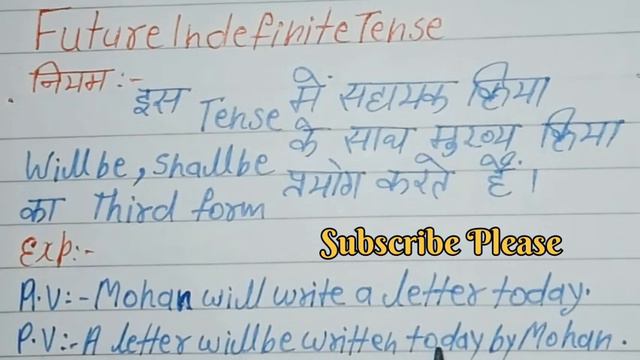 Future Indefinite Tense
नियम :-
इस Tense में सहायक क्रिया
Will be, shall be के साथ मुख्य क्रिया
का Third form प्रयोग करते हैं।
Exp:-
Subscribe Please
A.V:- Mohan will write a letter today.
P.V:- A letter will be written today by Mohan.